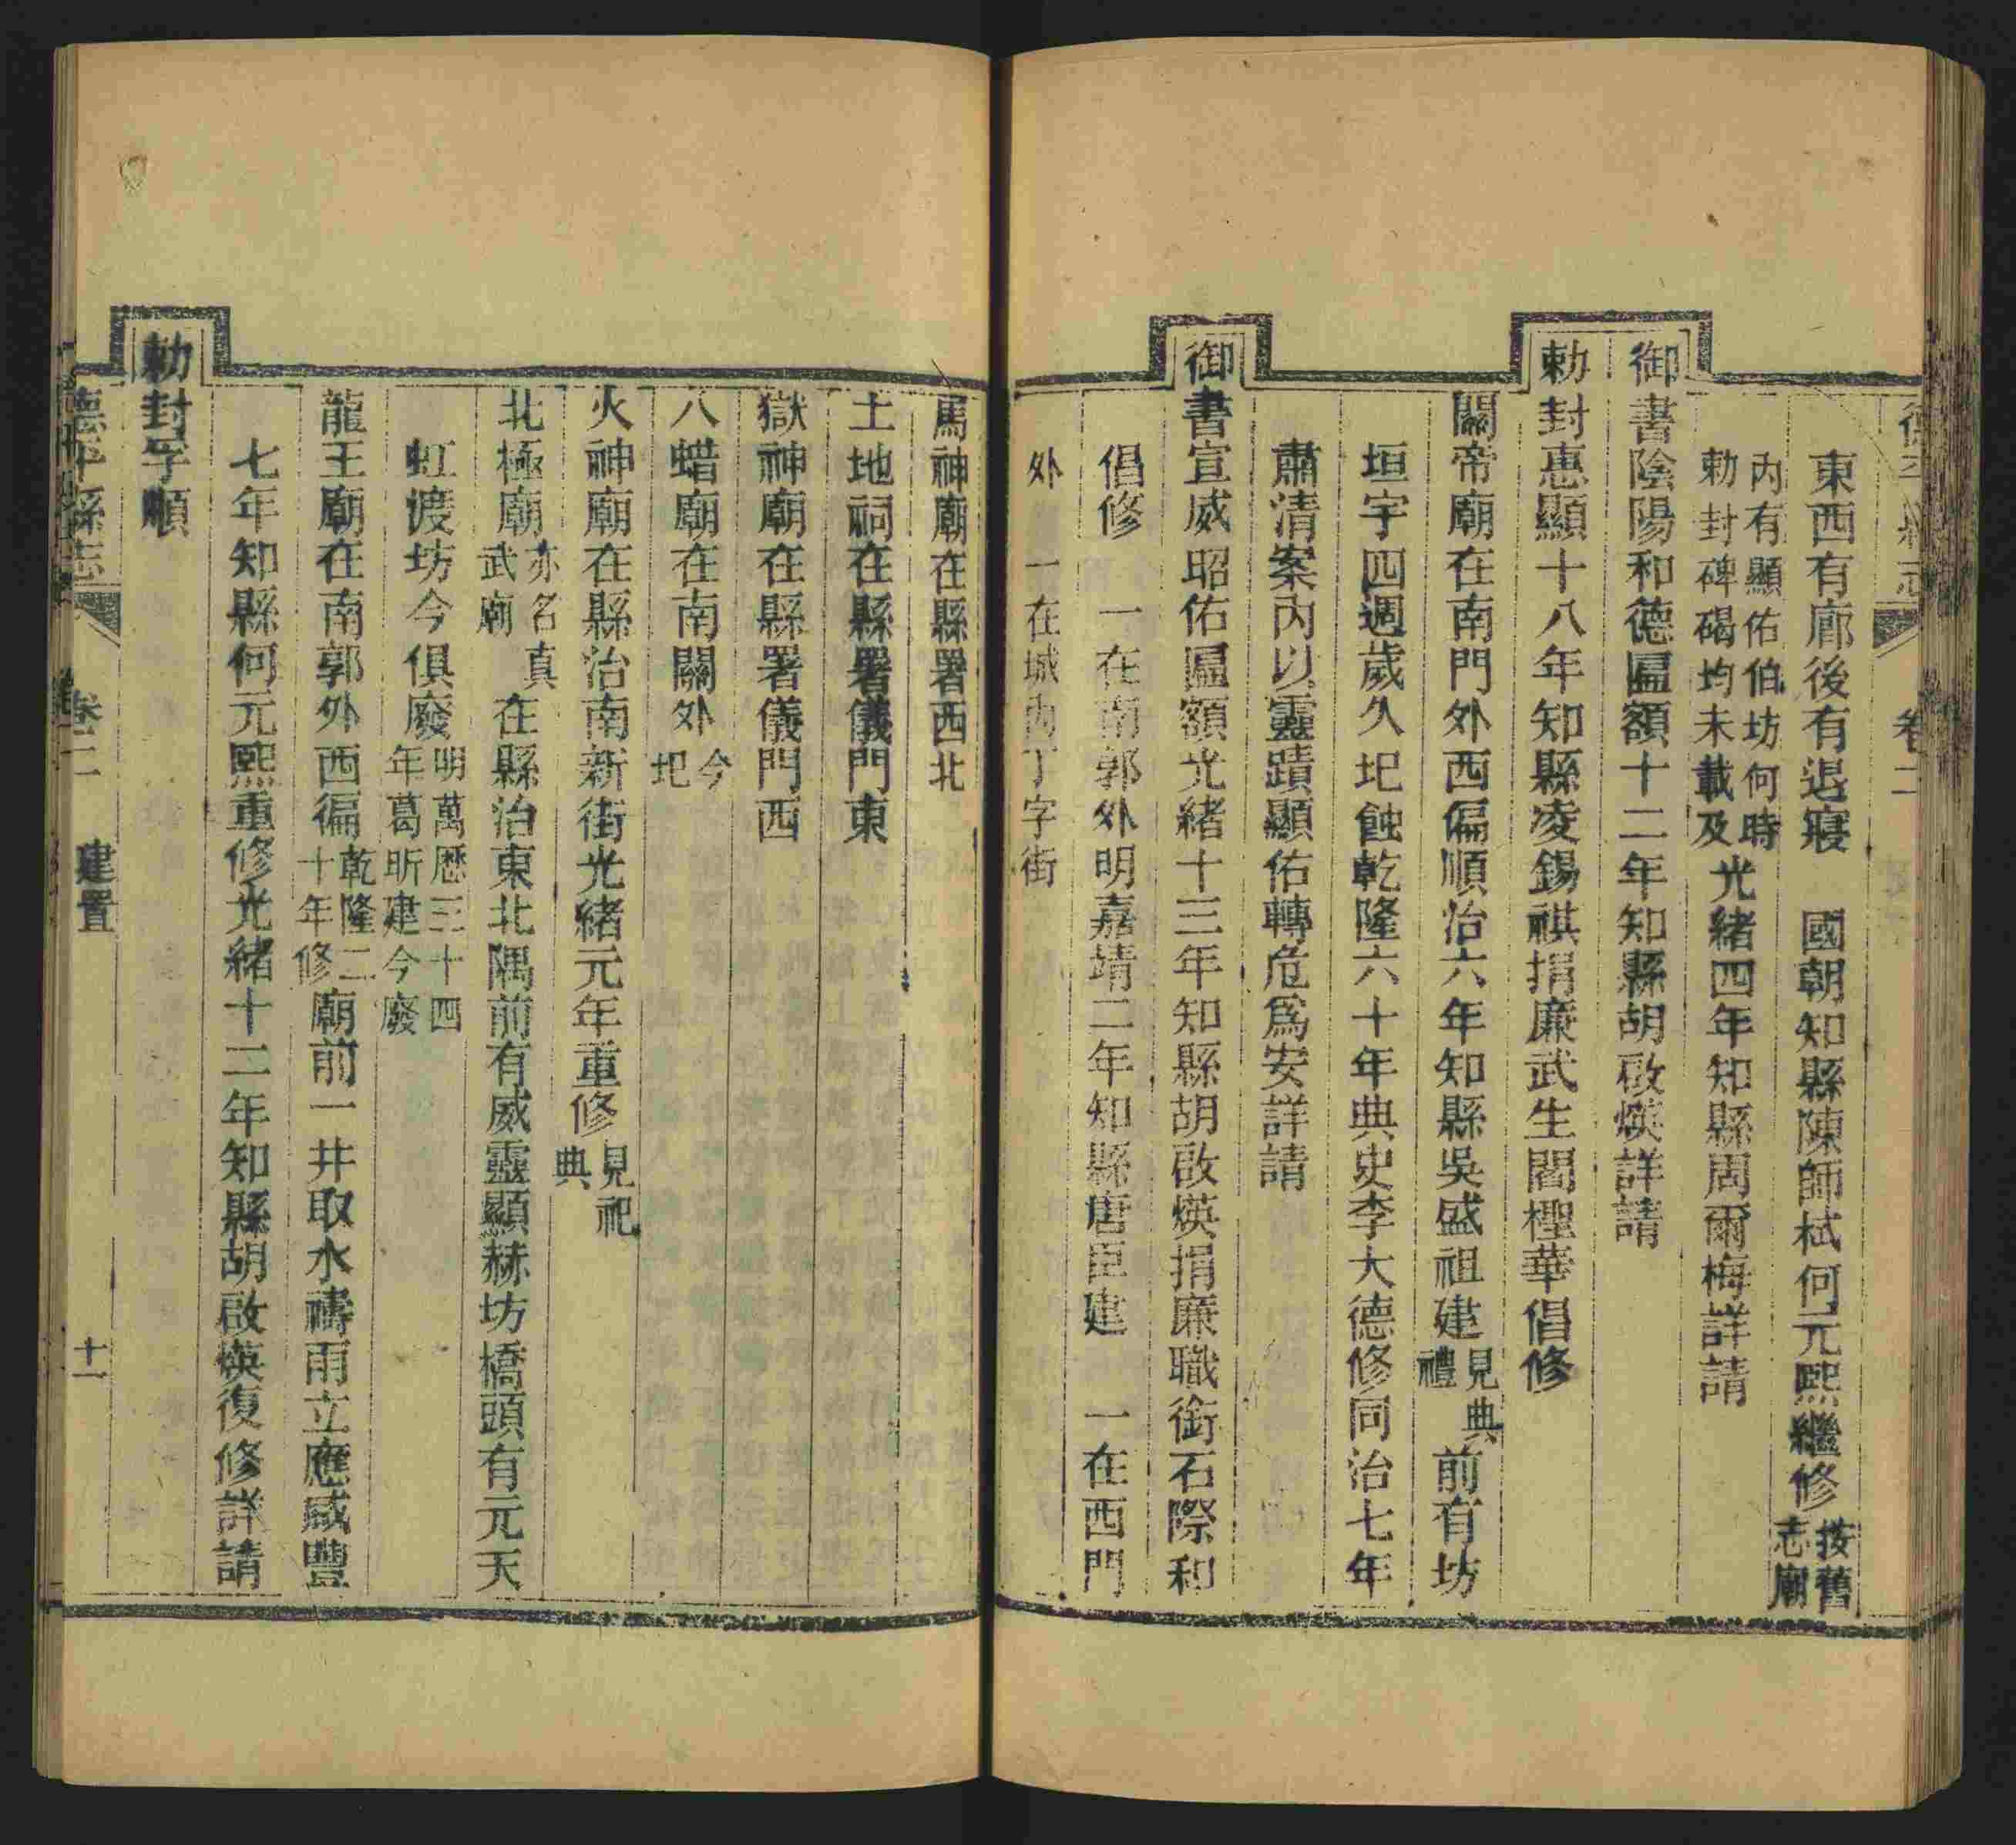 德平縣志 卷二
東西有廊後有退寢　國朝知縣陳師栻何元熙繼修按舊志廟
內有顯佑伯坊何時勅封碑碣均未載及光緒四年知縣周爾梅詳請
御書陰陽和德匾額十二年知縣胡啟煐詳請
勅封惠顯十八年知縣凌錫祺捐廉武生閻檉華倡修
關帝廟在南門外西偏順治六年知縣吳盛祖建見典禮前有坊
垣宇四週歲久圮蝕乾隆六十年典史李大德修同治七年
肅清案內以靈蹟顯佑轉危爲安詳請
御書宣威昭佑匾額光緒十三年知縣胡啟煐捐廉職銜石際和
倡修　一在南郭外明嘉靖二年知縣唐臣建　一在西門
外　一在城內丁字街
馬神廟在縣署西北
土地祠在縣署儀門東
獄神廟在縣署儀門西
八蜡廟在南關外今圮
火神廟在縣治南新街光緒元年重修見祀典
北極廟亦名真武廟在縣治東北隅前有威靈顯赫坊橋頭有元天
虹渡坊今俱廢明萬歷三十四年葛昕建今廢
龍王廟在南郭外西偏乾隆二十年修廟前一井取水禱雨立應咸豐
七年知縣何元熙重修光緒十二年知縣胡啟煐復修詳請
勅封孚順
德平縣志 卷二 建置 十一